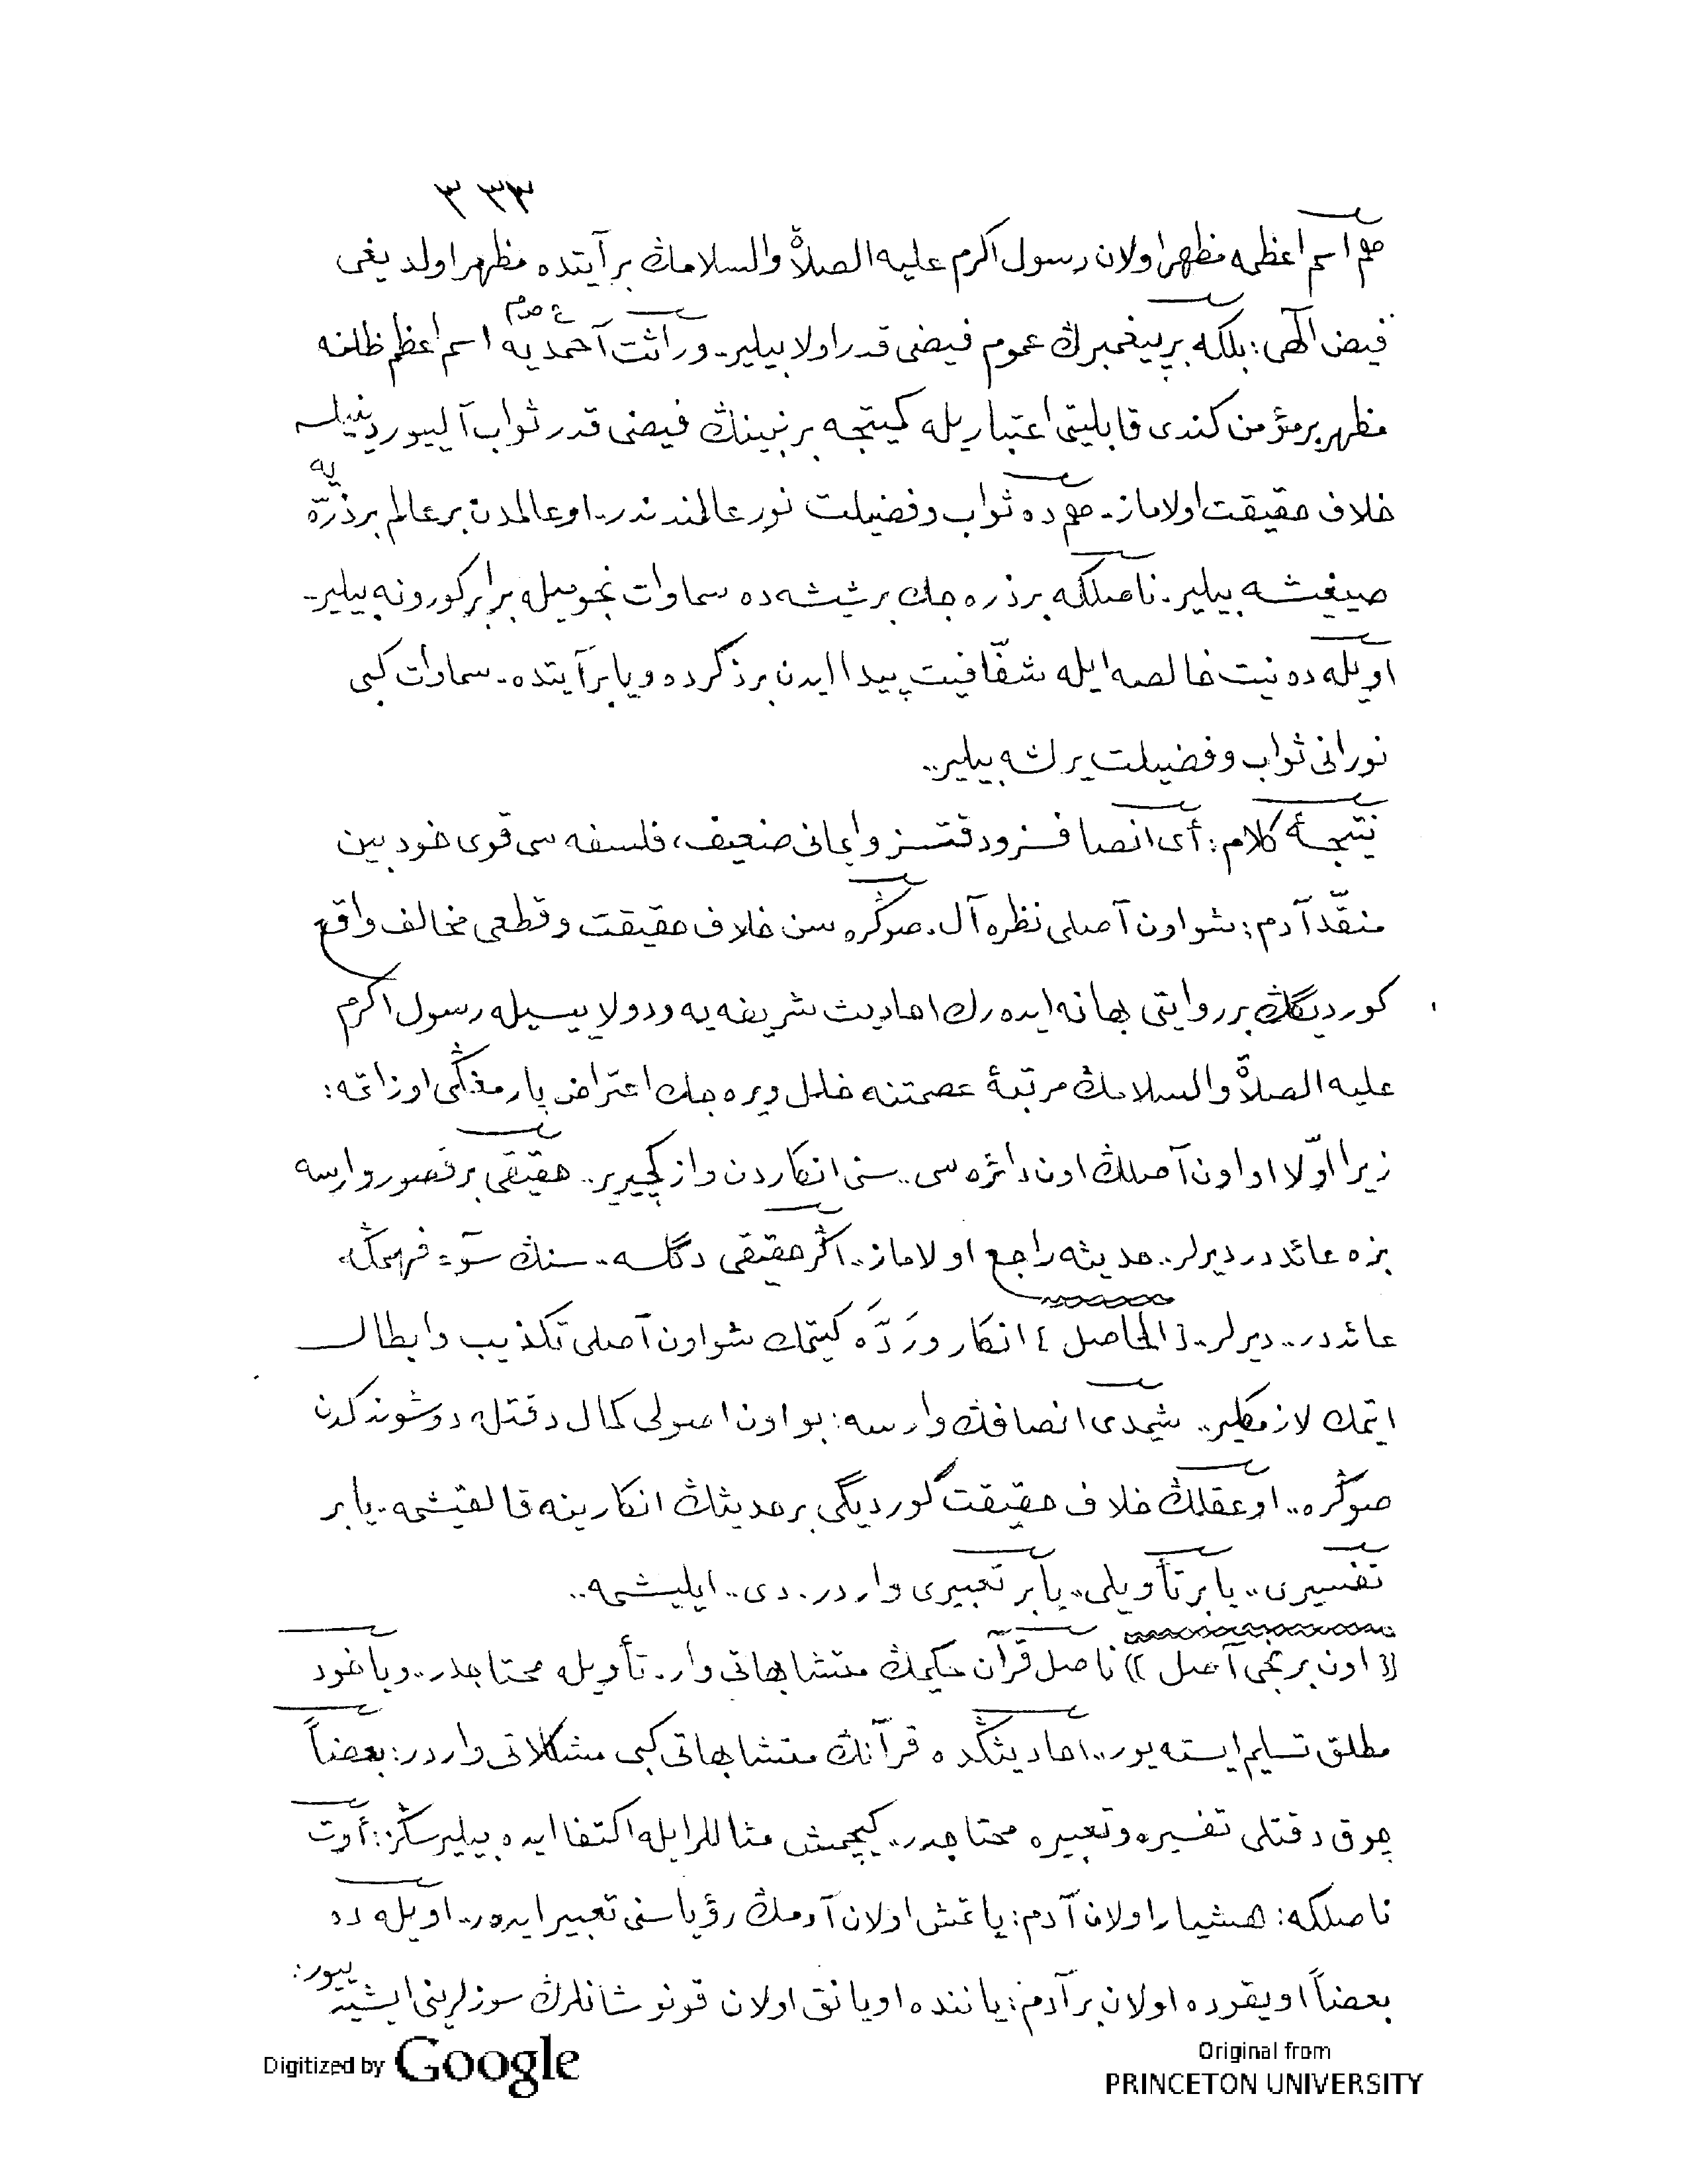 ٣٣٣
هم اسم اعظمه مظهر اولان رسول اکرم علیه الصلاة والسلامڭ بر آیتده مظهر اولدیغی
فیض الٓهی: بلکه بر پیغمبرڭ عموم فیضی قدر اولا بیلیر.. وراثت احمدیه اسم اعظم ظلنه
مظهر بر مؤمن کندی قابلیتی اعتباریله کمیتجه بر نبینڭ فیضی قدر ثواب آلییور دینیلسه
خلاف حقیقت اولاماز. هم ده ثواب وفضیلت نور عالمندندر.. او عالمدن بر عالم بر ذرّه یه
صیغیشه بیلیر. ناصلکه بر ذره جك بر شیشه ده سماوات نجومیله برابر کورونه بیلیر..
اویله ده نیت خالصه ایله شفّافیت پیدا ایدن بر ذکرده ویا بر آیتده.. سماوات کبی
نورانی ثواب وفضیلت یرلشه بیلیر..
نتیجۀ کلام: أی انصافسز ودقتسز وایمانی ضعیف، فلسفه سی قوی خودبین
منقّد آدم: شو اون آصلی نظره آل. صوڭره سن خلاف حقیقت وقطعی مخالف واقع
کوردیگڭ بر روایتی بهانه ایده رك احادیث شریفه یه ودولاییسیله رسول اکرم
علیه الصلاة والسلامڭ مرتبۀ عصمتنه خلل ویره جك اعتراض پارمغڭی اوزاتمه:
زیرا اوّلا او اون آصلڭ اون دائره سی.. سنی انکاردن وازکچیریر.. حقیقی بر قصور وارسه
بزه عائددر دیرلر.. حدیثه راجع اولاماز.. اگر حقیقی دگلسه.. سنڭ سوٓء فهمڭه
عائددر.. دیرلر.. {الحاصل} انکار ورَدّه کیتمك شو اون آصلی تکذیب وابطال
ایتمك لازمکلیر.. شیمدی انصافڭ وارسه: بو اون اصولی کمال دقتله دوشوندکدن
صوڭره.. او عقلڭ خلاف حقیقت گوردیگی بر حدیثڭ انکارینه قالقیشمه.. یا بر
تفسیری.. یا بر تأویلی.. یا بر تعبیری واردر. دی.. ایلیشمه..
((اون برنجی آصل)) ناصل قرآن حکیمڭ متشابهاتی وار.. تأویله محتاجدر.. ویاخود
مطلق تسلیم ایسته یور.. احادیثڭده قرآنڭ متشابهاتی کبی مشکلاتی واردر: بعضاً
چوق دقتلی تفسیره وتعبیره محتاجدر.. کچمش مثاللر ایله اکتفا ایده بیلیرسڭز: أوت
ناصلکه: هشیار اولان آدم: یاتمش اولان آدمڭ رؤیاسنی تعبیر ایدر.. اویله ده
بعضاً اویقوده اولان بر آدم: یاننده اویانق اولان قونوشانلرڭ سوزلرینی ایشیدییور:
Digitized by Google
Original from
PRINCETON UNIVERSITY